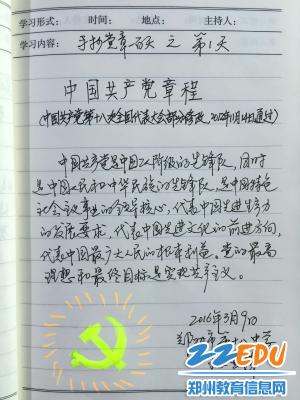 学习形式: 时间: 地点: 主持人:
学习内容: 手抄党章百天 之 第1天
中国共产党章程
(中国共产党第十八次全国代表大会部分修改,2012年11月14日通过)
中国共产党是中国工人阶级的先锋队,同时
是中国人民和中华民族的先锋队,是中国特色
社会主义事业的领导核心,代表中国先进生产力
的发展要求,代表中国先进文化的前进方向,
代表中国最广大人民的根本利益。党的最高
理想和最终目标是实现共产主义。
2016年3月9日
郑州市
ZZEDU
郑州教育信息网